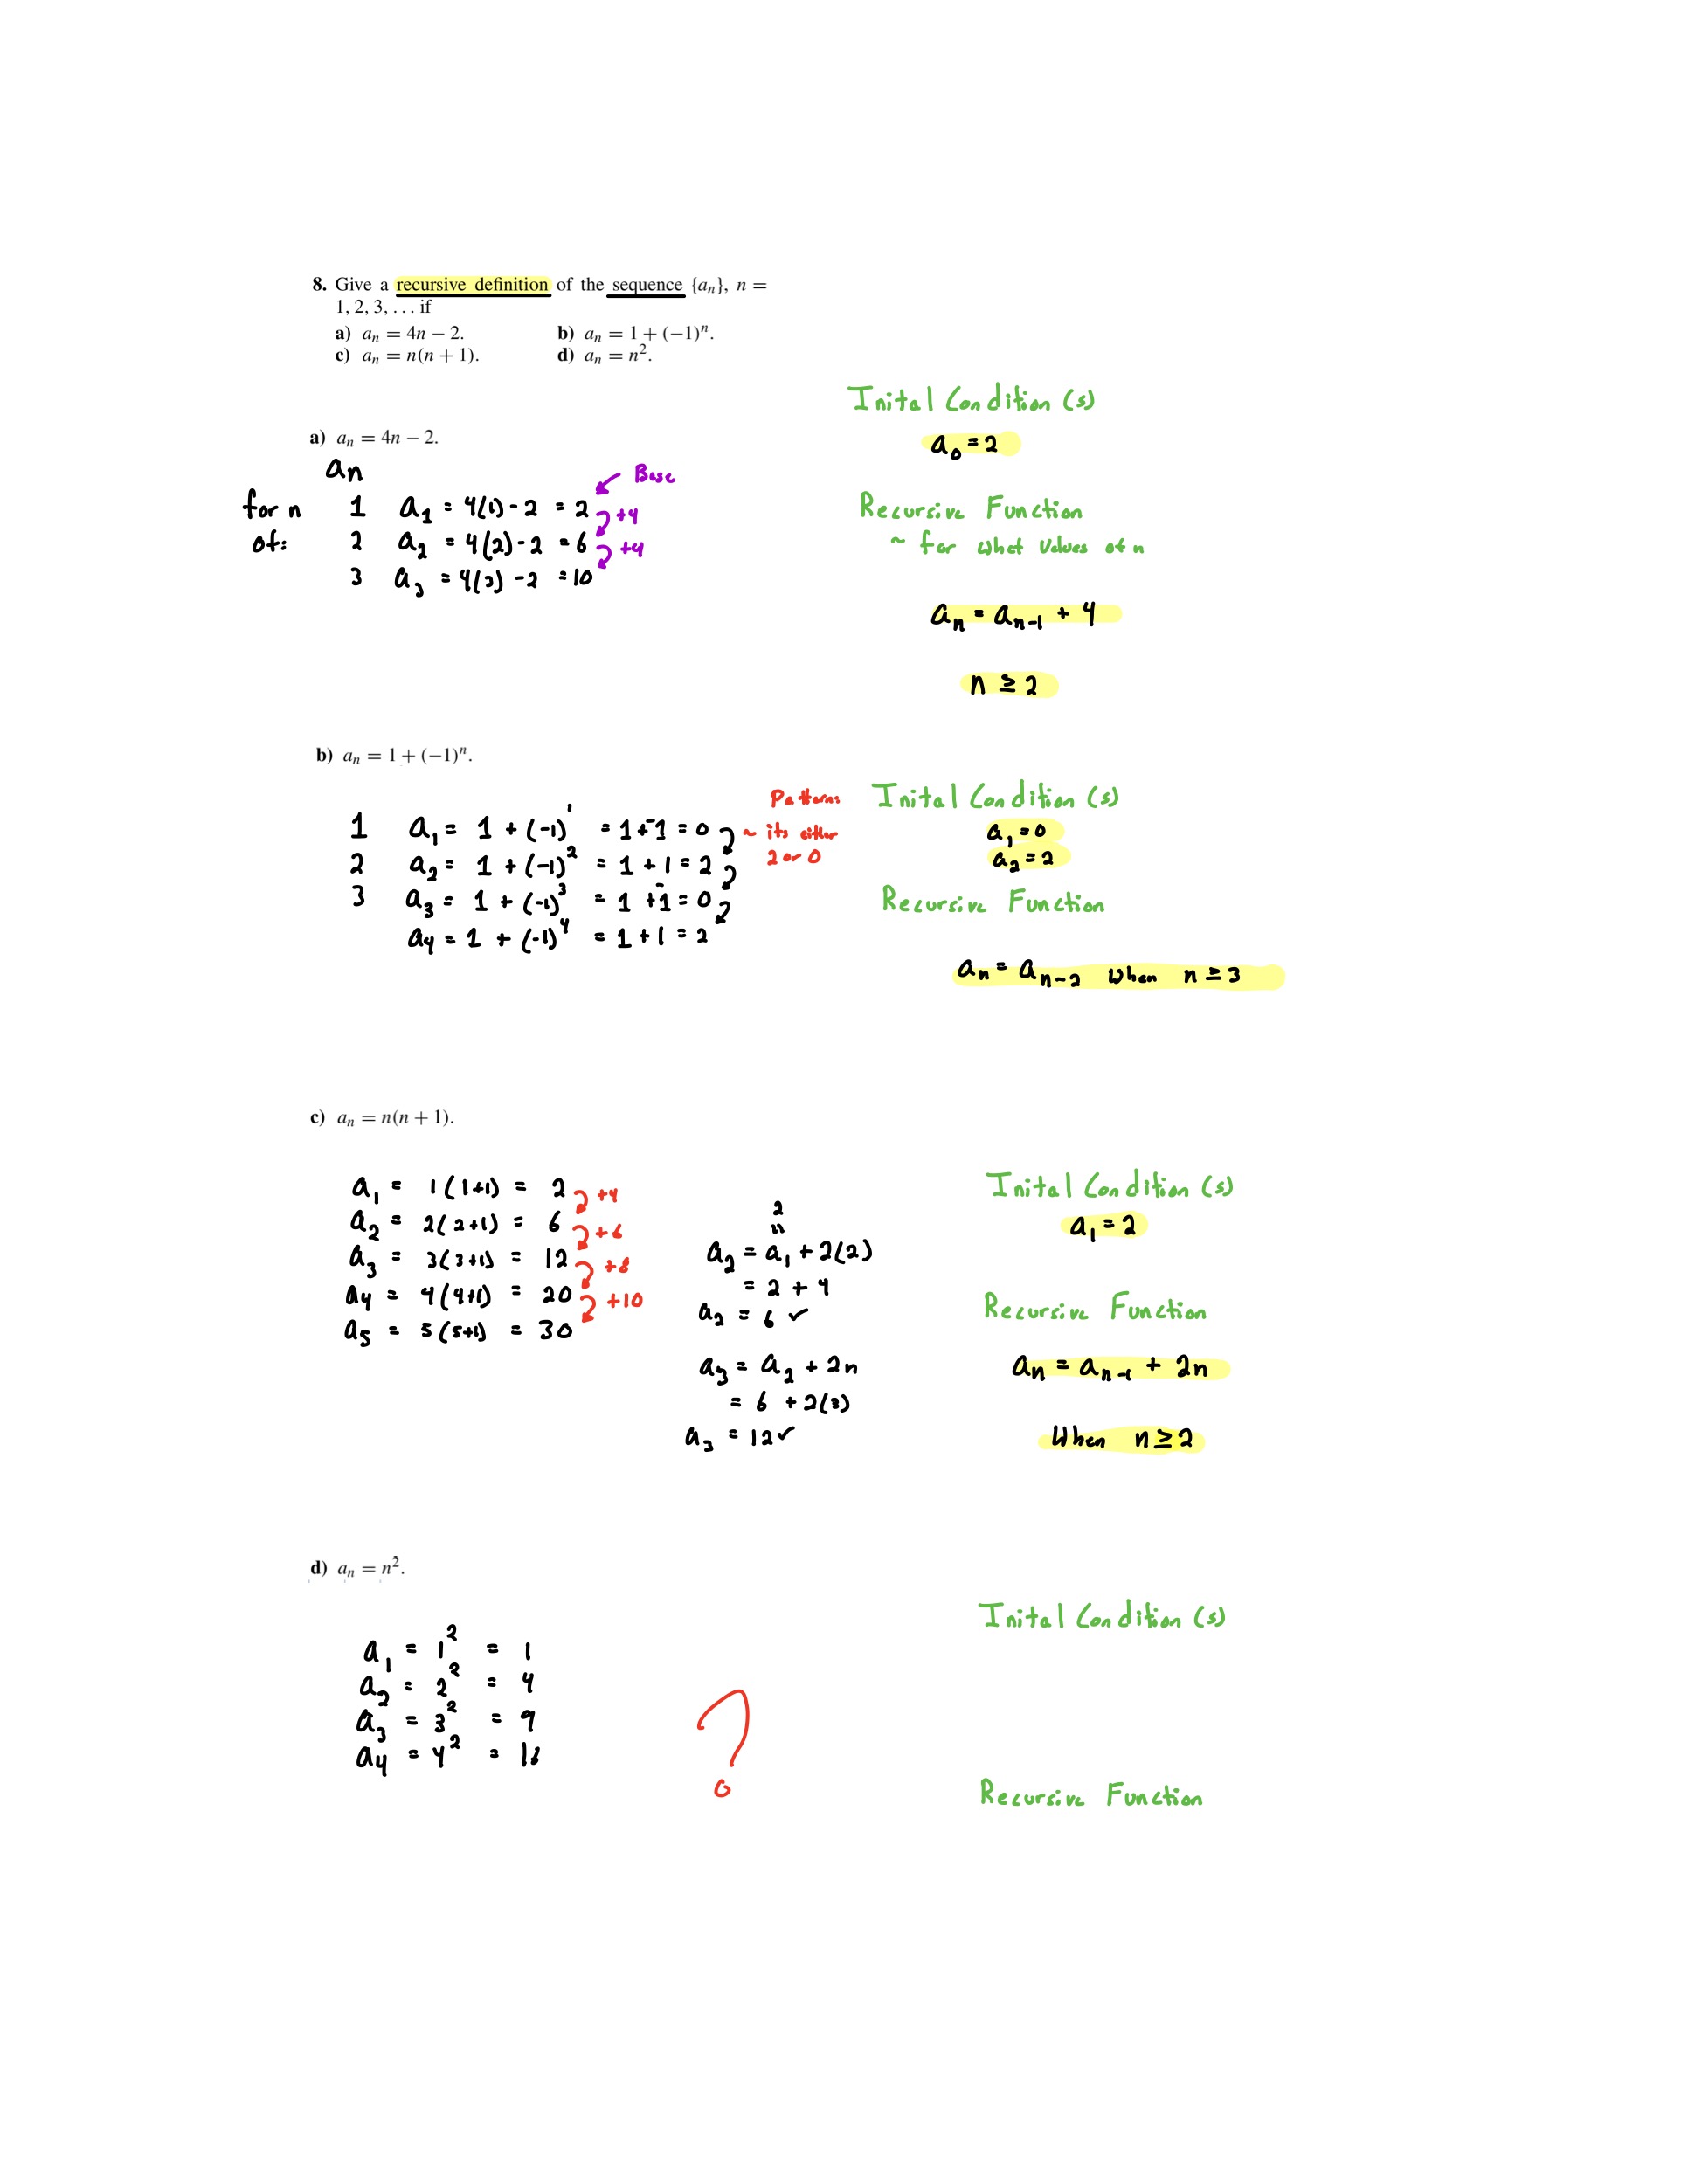 8. Give a recursive definition of the sequence {aₙ}, n =
1, 2, 3, … if
a) aₙ = 4n − 2. b) aₙ = 1 + (−1)ⁿ.
c) aₙ = n(n + 1). d) aₙ = n².
Inital Condition (s)
a₀ = 2
a) aₙ = 4n − 2.
aₙ
Base
for n 1 a₁ = 4(1) - 2 = 2 +4
of: 2 a₂ = 4(2) - 2 = 6 +4
3 a₃ = 4(3) - 2 = 10
Recursive Function
~ for what values of n
aₙ = aₙ₋₁ + 4
n ≥ 2
b) aₙ = 1 + (−1)ⁿ.
1 a₁ = 1 + (-1)¹ = 1 + ⁻1 = 0
2 a₂ = 1 + (-1)² = 1 + 1 = 2
3 a₃ = 1 + (-1)³ = 1 + ⁻1 = 0
a₄ = 1 + (-1)⁴ = 1 + 1 = 2
Patterns
~ its either
2 or 0
Inital Condition (s)
a₁ = 0
a₂ = 2
Recursive Function
aₙ = aₙ₋₂ when n ≥ 3
c) aₙ = n(n + 1).
a₁ = 1(1+1) = 2 +4
a₂ = 2(2+1) = 6 +6
a₃ = 3(3+1) = 12 +8
a₄ = 4(4+1) = 20 +10
a₅ = 5(5+1) = 30
2
"
a₂ = a₁ + 2(2)
= 2 + 4
a₂ = 6 ✓
a₃ = a₂ + 2n
= 6 + 2(3)
a₃ = 12 ✓
Inital Condition (s)
a₁ = 2
Recursive Function
aₙ = aₙ₋₁ + 2n
When n ≥ 2
d) aₙ = n².
a₁ = 1² = 1
a₂ = 2² = 4
a₃ = 3² = 9
a₄ = 4² = 16
?
Inital Condition (s)
Recursive Function